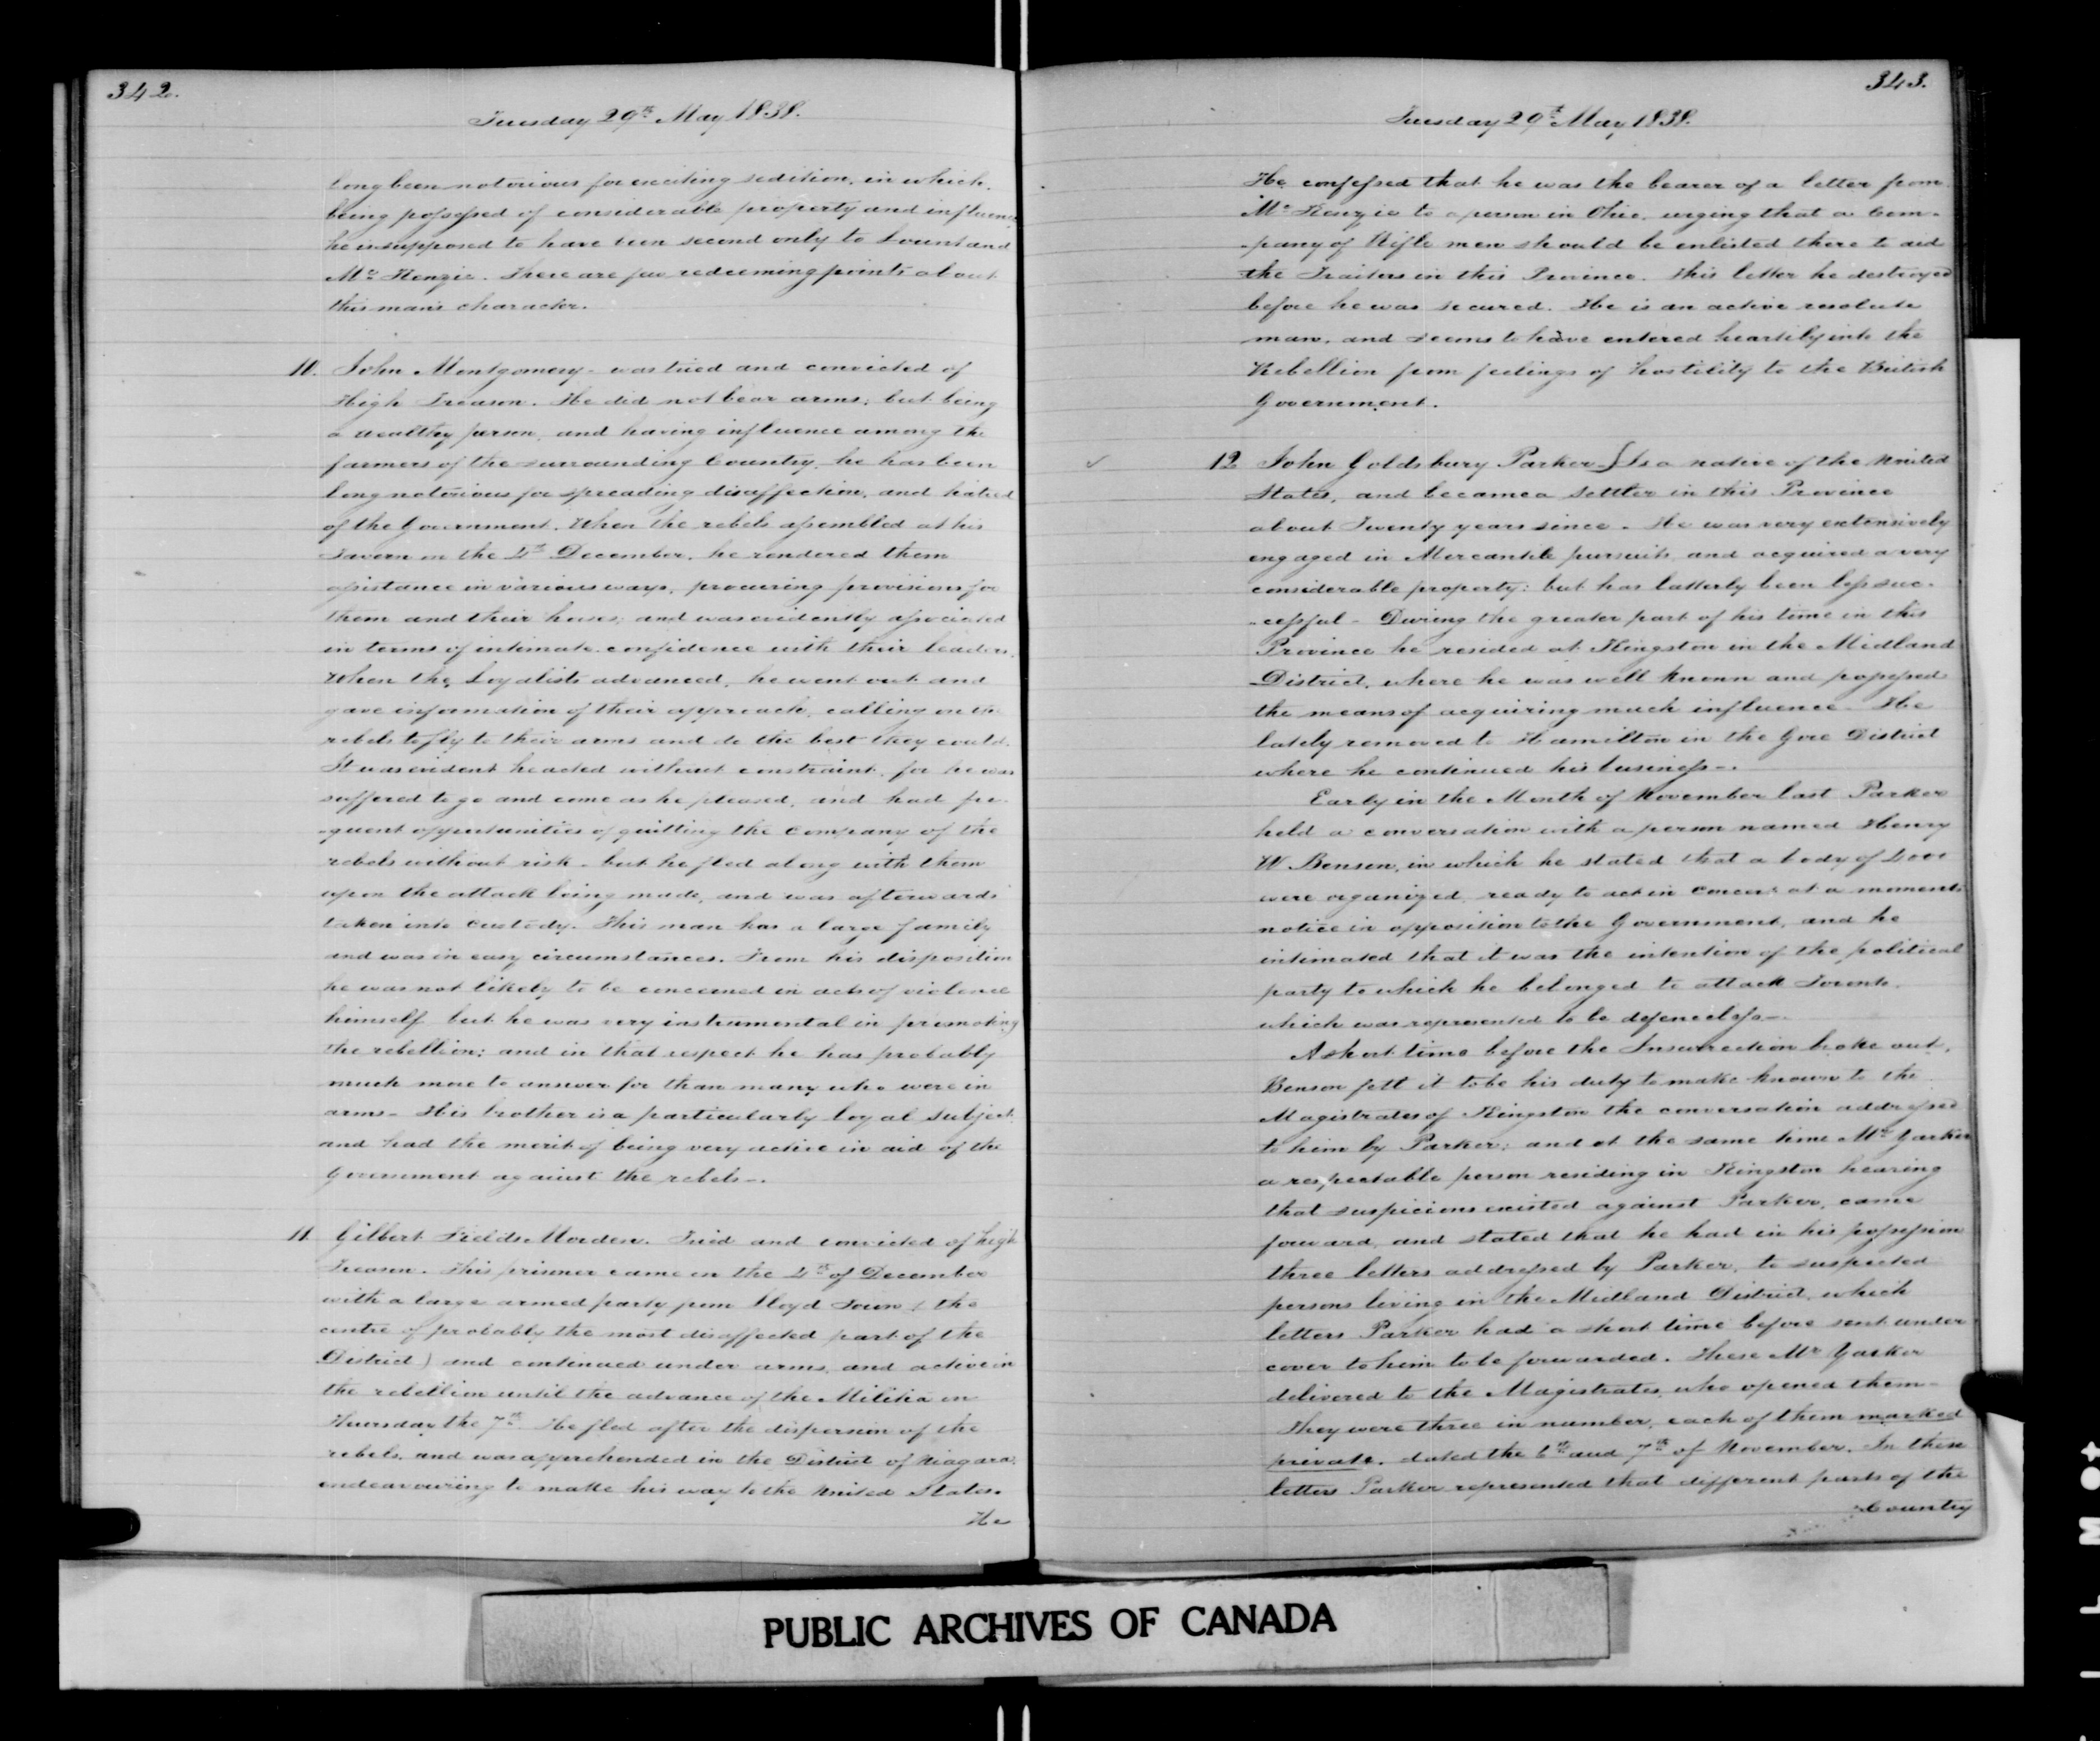 342.
Tuesday 29th May 1838.
long been notorious for exciting sedition, in which,
being possessed of considerable property and influence
he is supposed to have been second only to Lount and
Mc Kenzie. There are few redeeming points about
this man's character.
10. John Montgomery - was tried and convicted of
High Treason. He did not bear arms; but being
a wealthy person, and having influence among the
farmers of the surrounding Country, he has been
long notorious for spreading disaffection, and hatred
of the Government. When the rebels assembled at his
Tavern on the 4th December, he rendered them
assistance in various ways, procuring provisions for
them and their horses; and was evidently associated
in terms of intimate confidence with their leaders.
When the Loyalists advanced, he went out and
gave information of their approach, calling on the
rebels to fly to their arms and do the best they could.
It was evident he acted without constraint, for he was
suffered to go and come as he pleased, and had fre-
-quent opportunities of quitting the Company of the
rebels without risk - but he fled along with them
upon the attack being made, and was afterwards
taken into custody. This man has a large family
and was in easy circumstances. From his disposition
he was not likely to be concerned in acts of violence
himself but he was very instrumental in promoting
the rebellion; and in that respect he has probably
much more to answer for than many who were in
arms - His brother is a particularly loyal subject
and had the merit of being very active in aid of the
Government against the rebels -.
11. Gilbert Fields Morden. Tried and convicted of high
Treason. This prisoner came on the 4th of December
with a large armed party from Lloyd Town (the
centre of probably the most disaffected part of the
District) and continued under arms, and active in
the rebellion until the advance of the Militia on
Thursday the 7th. He fled after the dispersion of the
rebels, and was apprehended in the District of Niagara,
endeavouring to make his way to the United States.
He
343.
Tuesday 29th May 1838.
He confessed that he was the bearer of a letter from
Mc Kenzie to a person in Ohio, urging that a Com-
-pany of Rifle men should be enlisted there to aid
the Traitors in this Province. This letter he destroyed
before he was secured. He is an active resolute
man, and seems to have entered heartily into the
Rebellion from feelings of hostility to the British
Government.
12 John Goldsbury Parker - {Is a native of the United
States, and became a settler in this Province
about Twenty years since. He was very extensively
engaged in Mercantile pursuits and acquired a very
considerable property: but has latterly been less suc-
-cessful - During the greater part of his time in this
Province he resided at Kingston in the Midland
District, where he was well known and possessed
the means of acquiring much influence - He
lately removed to Hamilton in the Gore District
where he continued his business -.
Early in the Month of November last Parker
held a conversation with a person named Henry
W Benson, in which he stated that a body of 4000
were organized ready to act in concert at a moments
notice in opposition to the Government, and he
intimated that it was the intention of the political
party to which he belonged to attack Toronto,
which was represented to be defenceless -.
A short time before the Insurrection broke out,
Benson felt it to be his duty to make known to the
Magistrates of Kingston the conversation addressed
to him by Parker; and at the same time Mr Yarker
a respectable person residing in Kingston hearing
that suspicions existed against Parker, came
forward, and stated that he had in his possession
three letters addressed by Parker, to suspected
persons living in the Midland District, which
letters Parker had a short time before sent under
cover to him to be forwarded. These Mr Yarker
delivered to the Magistrates, who opened them -
They were three in number, each of them marked
private, dated the 6th and 7th of November. In these
letters Parker represented that different parts of the
Country
PUBLIC ARCHIVES OF CANADA